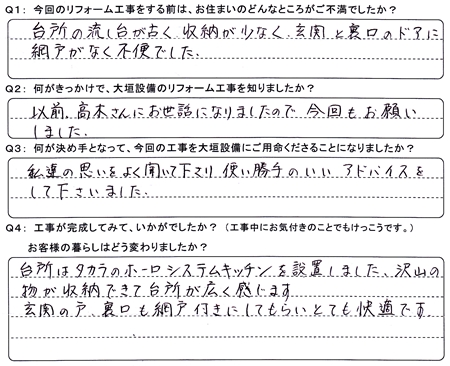 Q1： 今回のリフォーム工事をする前は、お住まいのどんなところがご不満でしたか？
台所の流し台が古く 収納が少なく、玄関と裏口のドアに
網戸がなく不便でした.
Q2： 何がきっかけで、大垣設備のリフォーム工事を知りましたか？
以前. 高木さんにお世話になりましたので 今回もお願い
しました.
Q3： 何が決め手となって、今回の工事を大垣設備にご用命くださることになりましたか？
私達の思いをよく聞いて下さり 使い勝手のいい アドバイスを
して下さいました.
Q4： 工事が完成してみて、いかがでしたか？ （工事中にお気付きのことでもけっこうです。）
お客様の暮らしはどう変わりましたか？
台所はタカラのホーロシステムキッチンを設置しました、沢山の
物が収納できて台所が広く感じます
玄関のア、裏口も網戸付きにしてもらいとても快適です